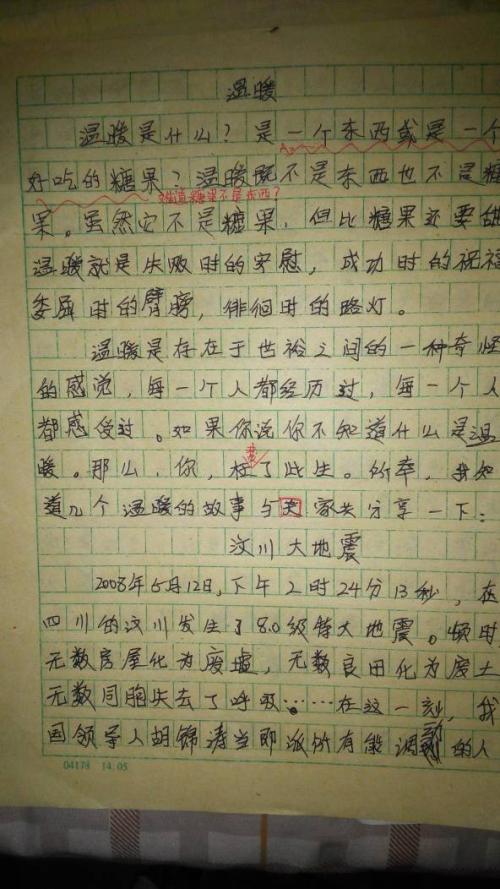 温暖
温暖是什么？是一个东西或是一个
好吃的糖果？温暖既不是东西也不是糖
难道糖果不是东西？
果。虽然它不是糖果，但比糖果还要甜
温暖就是失败时的安慰，成功时的祝福
委屈时的臂膀，徘徊时的路灯。
温暖是存在于世俗之间的一种奇怪
的感觉，每一个人都经历过，每一个人
都感受过。如果你说你不知道什么是温
暖。那么，你，枉了此生。所幸，我知
道几个温暖的故事与大家共分享一下：
汶川大地震
2008年5月12日，下午2时24分13秒，在
四川的汶川发生了8.0级特大地震。顿时
无数房屋化为废墟，无数良田化为废土
无数同胞失去了呼吸……在这一刻，我
国领导人胡锦涛当即派所有能调动的人
04178 14.05